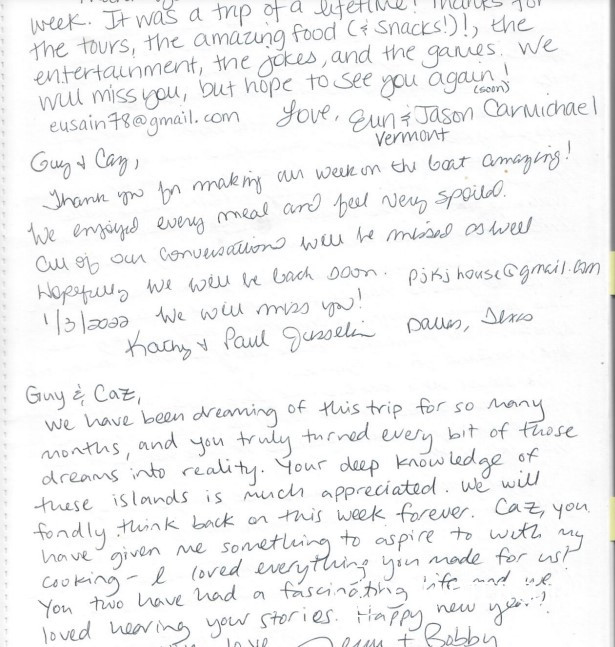 week. It was a trip of a lifetime! Thanks for
the tours, the amazing food (& snacks!)!, the
entertainment, the jokes, and the games. We
will miss you, but hope to see you again!
(soon)
eusain78@gmail.com Love, Eun & Jason Carmichael
Vermont
Guy & Caz,
Thank you for making our week on the boat amazing!
We enjoyed every meal and feel very spoiled.
All of our conversations will be missed as well
Hopefully we will be back soon. pjkjhouse@gmail.com
1/3/2022 We will miss you!
Kathy & Paul Dallas, Texas
Guy & Caz,
We have been dreaming of this trip for so many
months, and you truly turned every bit of those
dreams into reality. Your deep knowledge of
these islands is much appreciated. We will
fondly think back on this week forever. Caz, you
have given me something to aspire to with my
cooking - I loved everything you made for us!
You two have had a fascinating life and we
loved hearing your stories. Happy new year!
love + Bobby